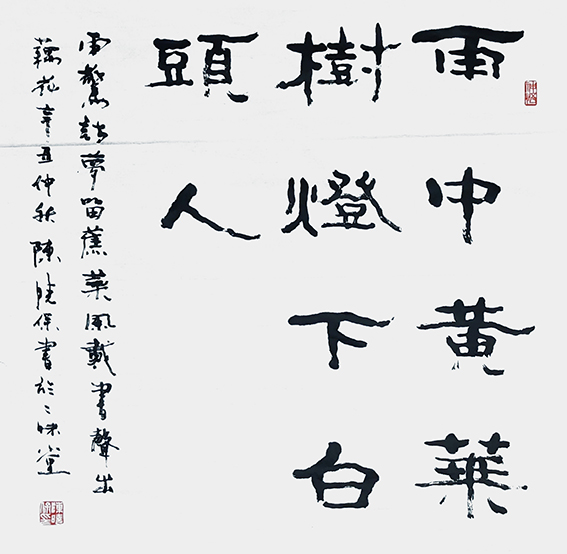 雨中黄葉
樹燈下白
頭人
雨驚詩夢留蕉葉風載書聲出
藕花辛丑仲秋陳保書於堂